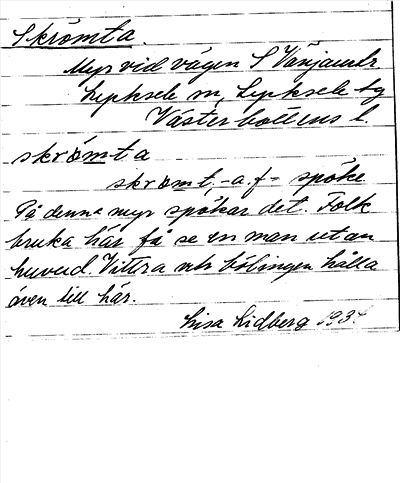 Skrömta.
Myr vid vägen S Vänjaurtr.
Lycksele sn, Lycksele tg
Västerbottens l.
skrömta
skrömt, -a. f = spöke.
På denna myr spökar det. Folk
bruka här få se en man utan
huvud. Vittra och bölingen hålla
även till här.
Lisa Lidberg 193